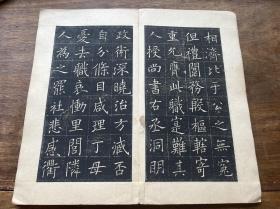 相濟比于公之無冤
但禮闈務殷樞轄寄
重允膺此職寔難其
人授尚書右丞洞明
政術深曉治方臧否
自分條目咸理丁母
憂去職哀慟里閭隣
人為之罷社悲感衢